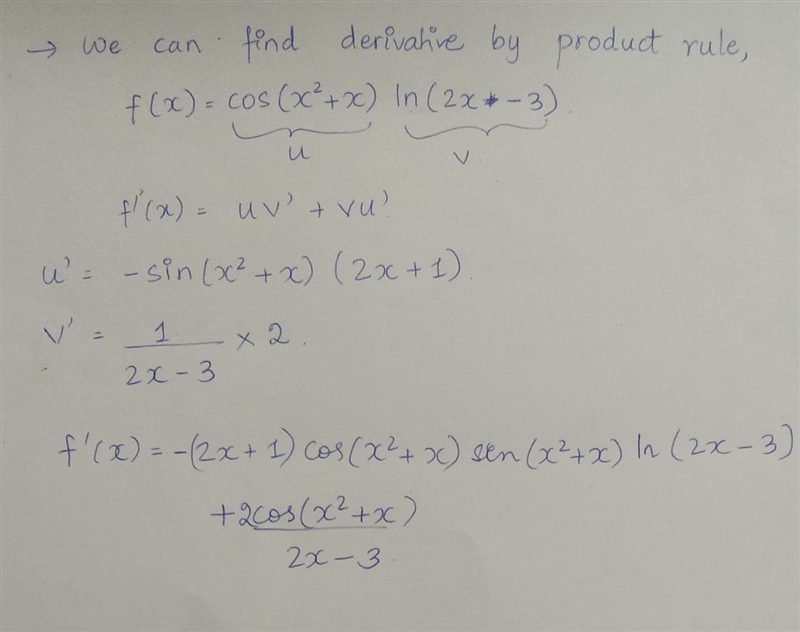 → we can find derivative by product rule,
f(x) = cos(x²+x) ln(2x - 3)
u v
f'(x) = uv' + vu'
u' = -sin(x²+x) (2x+1)
v' = 1/(2x-3) × 2.
f'(x) = -(2x+1) cos(x²+x) sen(x²+x) ln(2x-3)
+2cos(x²+x)
2x-3